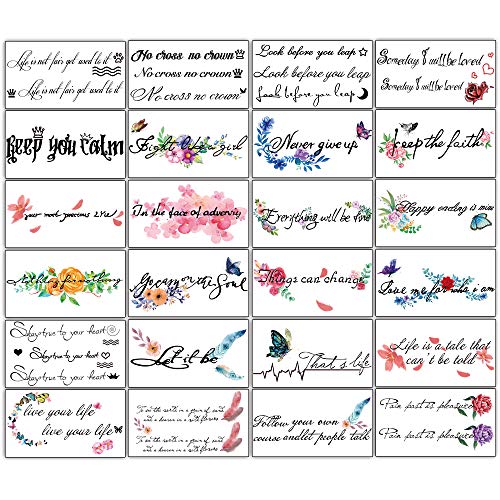 Life is not fair get used to it
Life is not fair get used to it
No cross no crown
No cross no crown
No cross no crown
Look before you leap
Look before you leap
Look before you leap
Someday I will be loved
Someday I will be loved
keep you calm
Fight like a girl
Never give up
keep the faith
your most precious
In the face of
Everything will be fine
Happy ending is mine
for
on the Soul
Things can change
Love me for who i am
Stay true to your heart
Stay true to your heart
Stay true to your heart
Let it be
That's life
Life is a tale that
can't be told
live your life
live your life
To see the world in a grain of sand
and a heaven in a wild
To see the world in a grain of sand
and a heaven in a wild
Follow your own
course andlet people talk
Pain past is pleasure
Pain past is pleasure